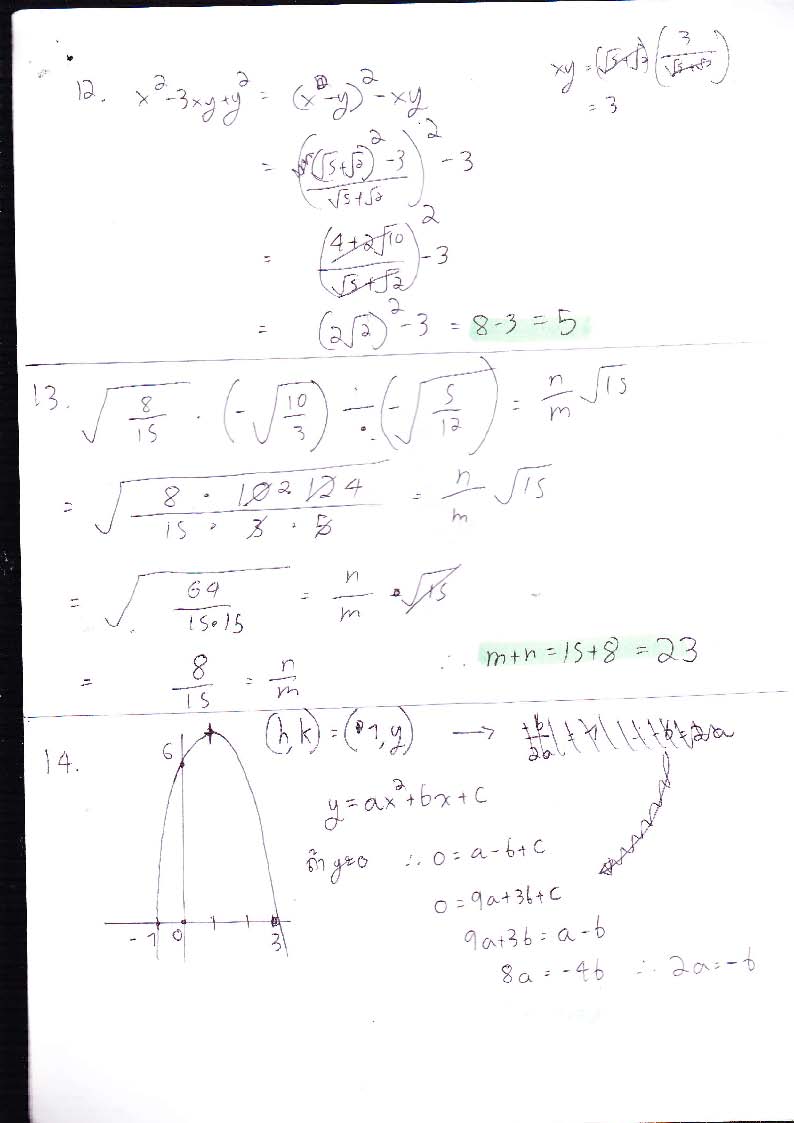 12. x² - 3xy + y² = (x - y)² - xy
xy = (√5+√2) (3/(√5+√2))
= 3
= (((√5+√2)² - 3)/(√5+√2))² - 3
= ((4+2√10)/(√5+√2))² - 3
= (2√2)² - 3 = 8-3 = 5
13. √(8/15) · (-√(10/3)) ÷ (-√(5/12)) = n/m √15
= √((8 · 10 2 12 4)/(15 · 3 · 5)) = n/m √15
= √(64/(15·15)) = n/m · √15
= 8/15 = n/m ∴ m+n = 15+8 = 23
14. (h, k) = (1, y) →
6
y = ax² + bx + c
ถ้า y=0 ∴ 0 = a-b+c
0 = 9a+3b+c
-1 0 3
9a+3b = a-b
8a = -4b ∴ 2a = -b